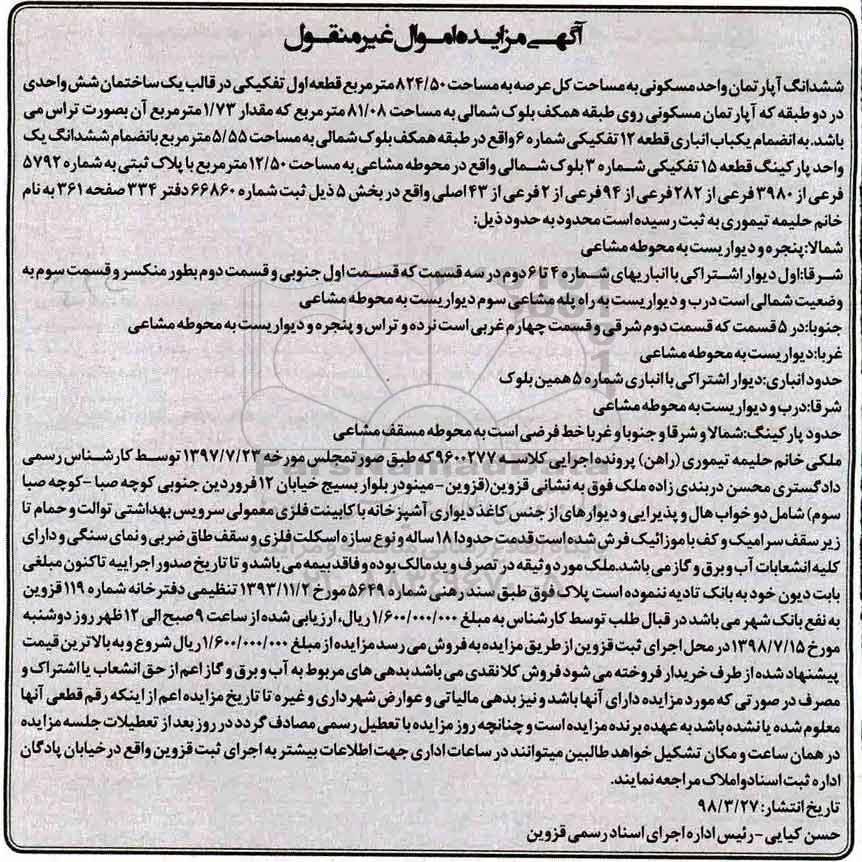 آگهی مزایده اموال غیر منقول
ششدانگ آپارتمان واحد مسکونی به مساحت کل عرصه به مساحت ۸۲۴/۵۰ متر مربع قطعه اول تفکیکی در قالب یک ساختمان شش واحدی
در دو طبقه که آپارتمان مسکونی روی طبقه همکف بلوک شمالی به مساحت ۸۱/۰۸ متر مربع که مقدار ۱/۷۳ متر مربع آن بصورت تراس می
باشد. به انضمام یکباب انباری قطعه ۱۲ تفکیکی شماره ۶ واقع در طبقه همکف بلوک شمالی به مساحت ۵/۵۵ متر مربع بانضمام ششدانگ یک
واحد پارکینگ قطعه ۱۵ تفکیکی شماره ۳ بلوک شمالی واقع در محوطه مشاعی به مساحت ۱۲/۵۰ متر مربع با پلاک ثبتی به شماره ۵۷۹۲
فرعی از ۳۹۸۰ فرعی از ۲۸۲ فرعی از ۹۴ فرعی از ۲ فرعی از ۴۳ اصلی واقع در بخش ۵ ذیل ثبت شماره ۶۶۸۶۰ دفتر ۳۳۴ صفحه ۳۶۱ به نام
خانم حلیمه تیموری به ثبت رسیده است محدود به حدود ذیل:
شمالا: پنجره و دیواریست به محوطه مشاعی
شرقا: اول دیوار اشتراکی با انباریهای شماره ۴ تا ۶ دوم در سه قسمت که قسمت اول جنوبی و قسمت دوم بطور منکسر و قسمت سوم به
وضعیت شمالی است درب و دیواریست به راه پله مشاعی سوم دیواریست به محوطه مشاعی
جنوبا: در ۵ قسمت که قسمت دوم شرقی و قسمت چهارم غربی است نرده و تراس و پنجره و دیواریست به محوطه مشاعی
غربا: دیواریست به محوطه مشاعی
حدود انباری: دیوار اشتراکی با انباری شماره ۵ همین بلوک
شرقا: درب و دیواریست به محوطه مشاعی
حدود پارکینگ: شمالا و شرقا و جنوبا و غربا خط فرضی است به محوطه مسقف مشاعی
ملکی خانم حلیمه تیموری (راهن) پرونده اجرایی کلاسه ۹۶۰۰۲۷۷ که طبق صورتمجلس مورخه ۱۳۹۷/۷/۲۳ توسط کارشناس رسمی
دادگستری محسن دربندی زاده ملک فوق به نشانی قزوین (قزوین - مینودر بلوار بسیج خیابان ۱۲ فروردین جنوبی کوچه صبا - کوچه صبا
سوم) شامل دو خواب هال و پذیرایی و دیوارهای از جنس کاغذ دیواری آشپزخانه با کابینت فلزی معمولی سرویس بهداشتی توالت و حمام تا
زیر سقف سرامیک و کف با موزائیک فرش شده است قدمت حدودا ۱۸ ساله و نوع سازه اسکلت فلزی و سقف طاق ضربی و نمای سنگی و دارای
کلیه انشعابات آب و برق و گاز می باشد. ملک مورد وثیقه در تصرف و ید مالک بوده و فاقد بیمه می باشد و تا تاریخ صدور اجراییه تاکنون مبلغی
بابت دیون خود به بانک تادیه ننموده است پلاک فوق طبق سند رهنی شماره ۵۶۴۹ مورخ ۱۳۹۳/۱۱/۲ تنظیمی دفترخانه شماره ۱۱۹ قزوین
به نفع بانک شهر می باشد در قبال طلب توسط کارشناس به مبلغ ۱/۶۰۰/۰۰۰/۰۰۰ ریال، ارزیابی شده از ساعت ۹ صبح الی ۱۲ ظهر روز دوشنبه
مورخ ۱۳۹۸/۷/۱۵ در محل اجرای ثبت قزوین از طریق مزایده به فروش می رسد مزایده از مبلغ ۱/۶۰۰/۰۰۰/۰۰۰ ریال شروع و به بالاترین قیمت
پیشنهاد شده از طرف خریدار فروخته می شود فروش کلا نقدی می باشد بدهی های مربوط به آب و برق و گاز اعم از حق انشعاب یا اشتراک و
مصرف در صورتی که مورد مزایده دارای آنها باشد و نیز بدهی مالیاتی و عوارض شهرداری و غیره تا تاریخ مزایده اعم از اینکه رقم قطعی آنها
معلوم شده یا نشده باشد به عهده برنده مزایده است و چنانچه روز مزایده با تعطیل رسمی مصادف گردد در روز بعد از تعطیلات جلسه مزایده
در همان ساعت و مکان تشکیل خواهد طالبین میتوانند در ساعات اداری جهت اطلاعات بیشتر به اجرای ثبت قزوین واقع در خیابان پادگان
اداره ثبت اسناد و املاک مراجعه نمایند.
تاریخ انتشار: ۹۸/۳/۲۷
حسن کیایی - رئیس اداره اجرای اسناد رسمی قزوین